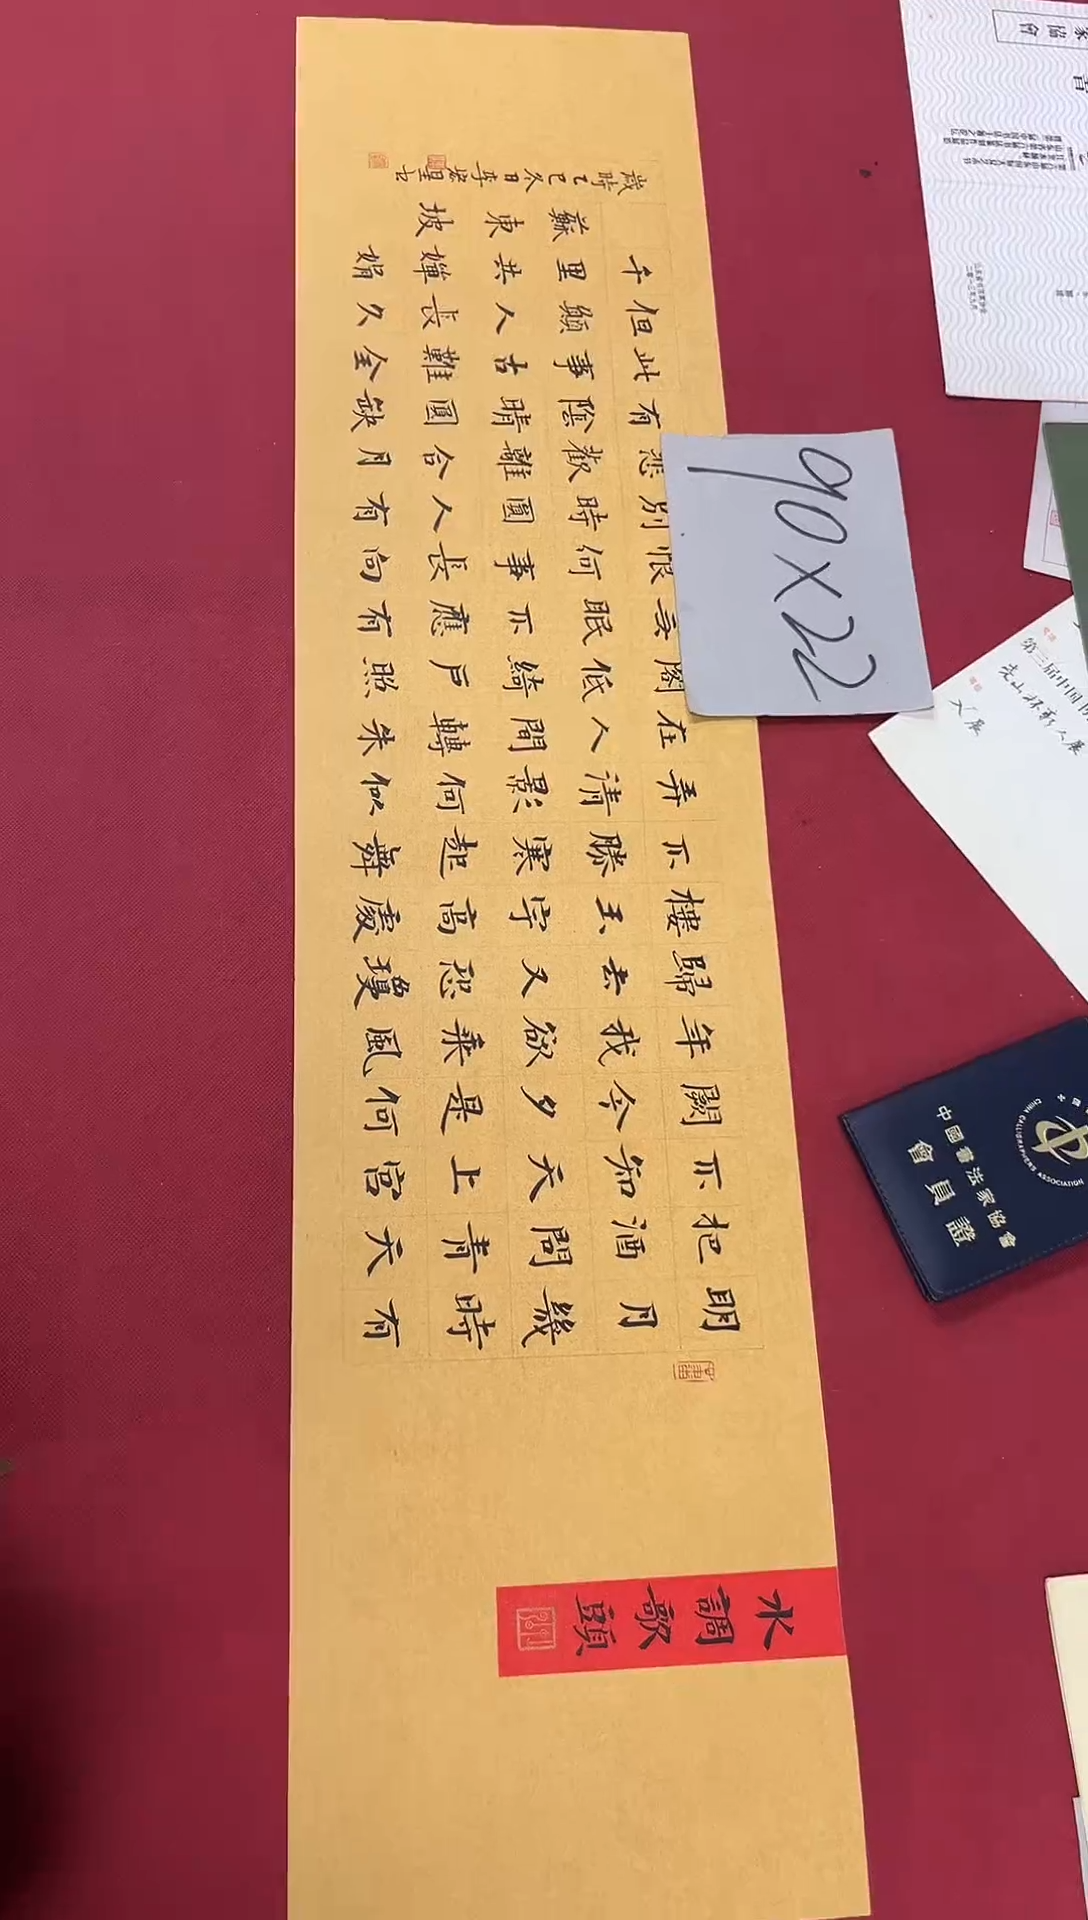 水調歌頭
明月幾時有
把酒問青天
不知天上宮
闕今夕是何
年我欲乘風
歸去又恐瓊
樓玉宇高處
不勝寒起舞
弄清影何似
在人間轉朱
閣低綺戶照
无眠不應有
恨何事長向
別時圓人有
悲歡離合月
有陰晴圓缺
此事古難全
但願人長久
千里共嬋娟
蘇東坡
歲時乙巳冬日李
90X22
家協會
第三届中国
入展
中國書法家協會
會員證
CHINA CALLIGRAPHERS ASSOCIATION